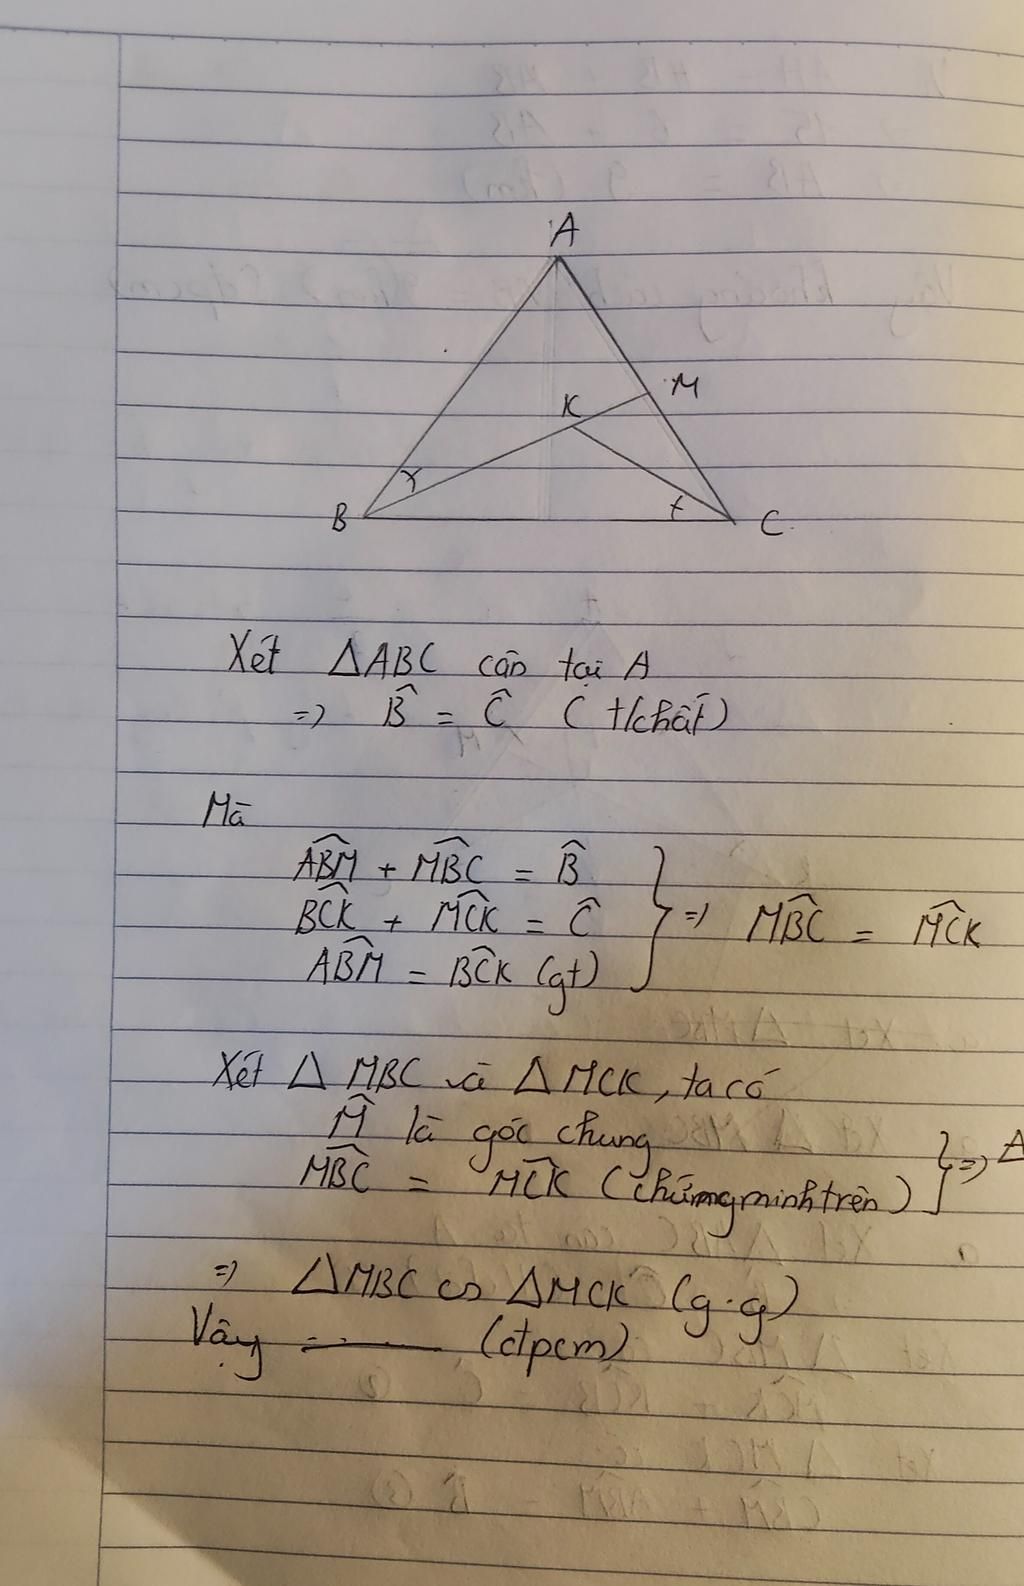 A
M
K
B
C
Xét ΔABC cân tại A
=> B̂ = Ĉ (t/chất)
Mà
ABM̂ + MBĈ = B̂
BCK̂ + MCK̂ = Ĉ
ABM̂ = BCK̂ (gt)
=> MBĈ = MCK̂
Xét Δ MBC và Δ MCK, ta có
M̂ là góc chung
MBĈ = MCK̂ (chứng minh trên)
=> Δ
=> ΔMBC ∽ ΔMCK (g.g)
Vậy (đpcm)